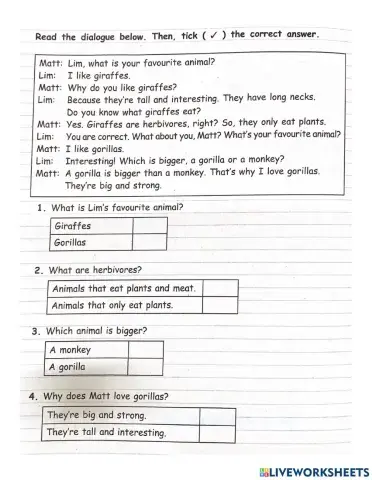 Read the dialogue below. Then, tick ( ✓ ) the correct answer.
Matt: Lim, what is your favourite animal?
Lim: I like giraffes.
Matt: Why do you like giraffes?
Lim: Because they're tall and interesting. They have long necks.
Do you know what giraffes eat?
Matt: Yes. Giraffes are herbivores, right? So, they only eat plants.
Lim: You are correct. What about you, Matt? What's your favourite animal?
Matt: I like gorillas.
Lim: Interesting! Which is bigger, a gorilla or a monkey?
Matt: A gorilla is bigger than a monkey. That's why I love gorillas.
They're big and strong.
1. What is Lim's favourite animal?
Giraffes
Gorillas
2. What are herbivores?
Animals that eat plants and meat.
Animals that only eat plants.
3. Which animal is bigger?
A monkey
A gorilla
4. Why does Matt love gorillas?
They're big and strong.
They're tall and interesting.
LIVEWORKSHEETS